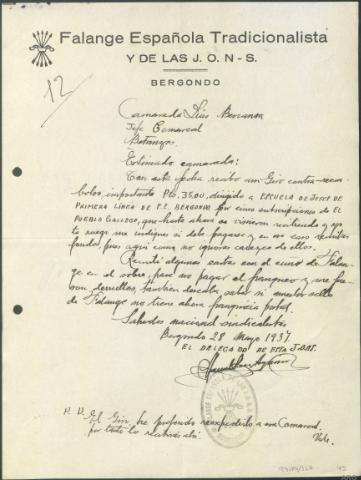 Falange Española Tradicionalista
Y DE LAS J. O. N - S.
BERGONDO
12
Camarada
Jefe Comarcal
Betanzos.
Estimado camarada:
Con esta fecha recibo un Giro contra-reem-
bolso, importante Pts. 35,00, dirigido a ESCUELA DE
PRIMERA LÍNEA DE F.E. BERGONDO por cinco subscripciones de EL
PUEBLO GALLEGO, que hasta ahora se vinieron recibiendo y
te ruego me indiques si debo pagarse y en ese caso
fondos, pues aquí como no ignoras carezco de ellos.
Remití algunas cartas con el cuño de Falan-
ge en el sobre, para no pagar el franqueo y me fue-
ron devueltas, también deseaba saber si nuestro sello
de Falange no tiene ahora franquicia postal.
Saludos nacional-sindicalistas
Bergondo 28 Mayo 1937.
EL DELEGADO DE
P. D. El Giro, he preferido reexpedirlo a esa Comarcal.
por tanto lo recibirás ahí.
Vale.